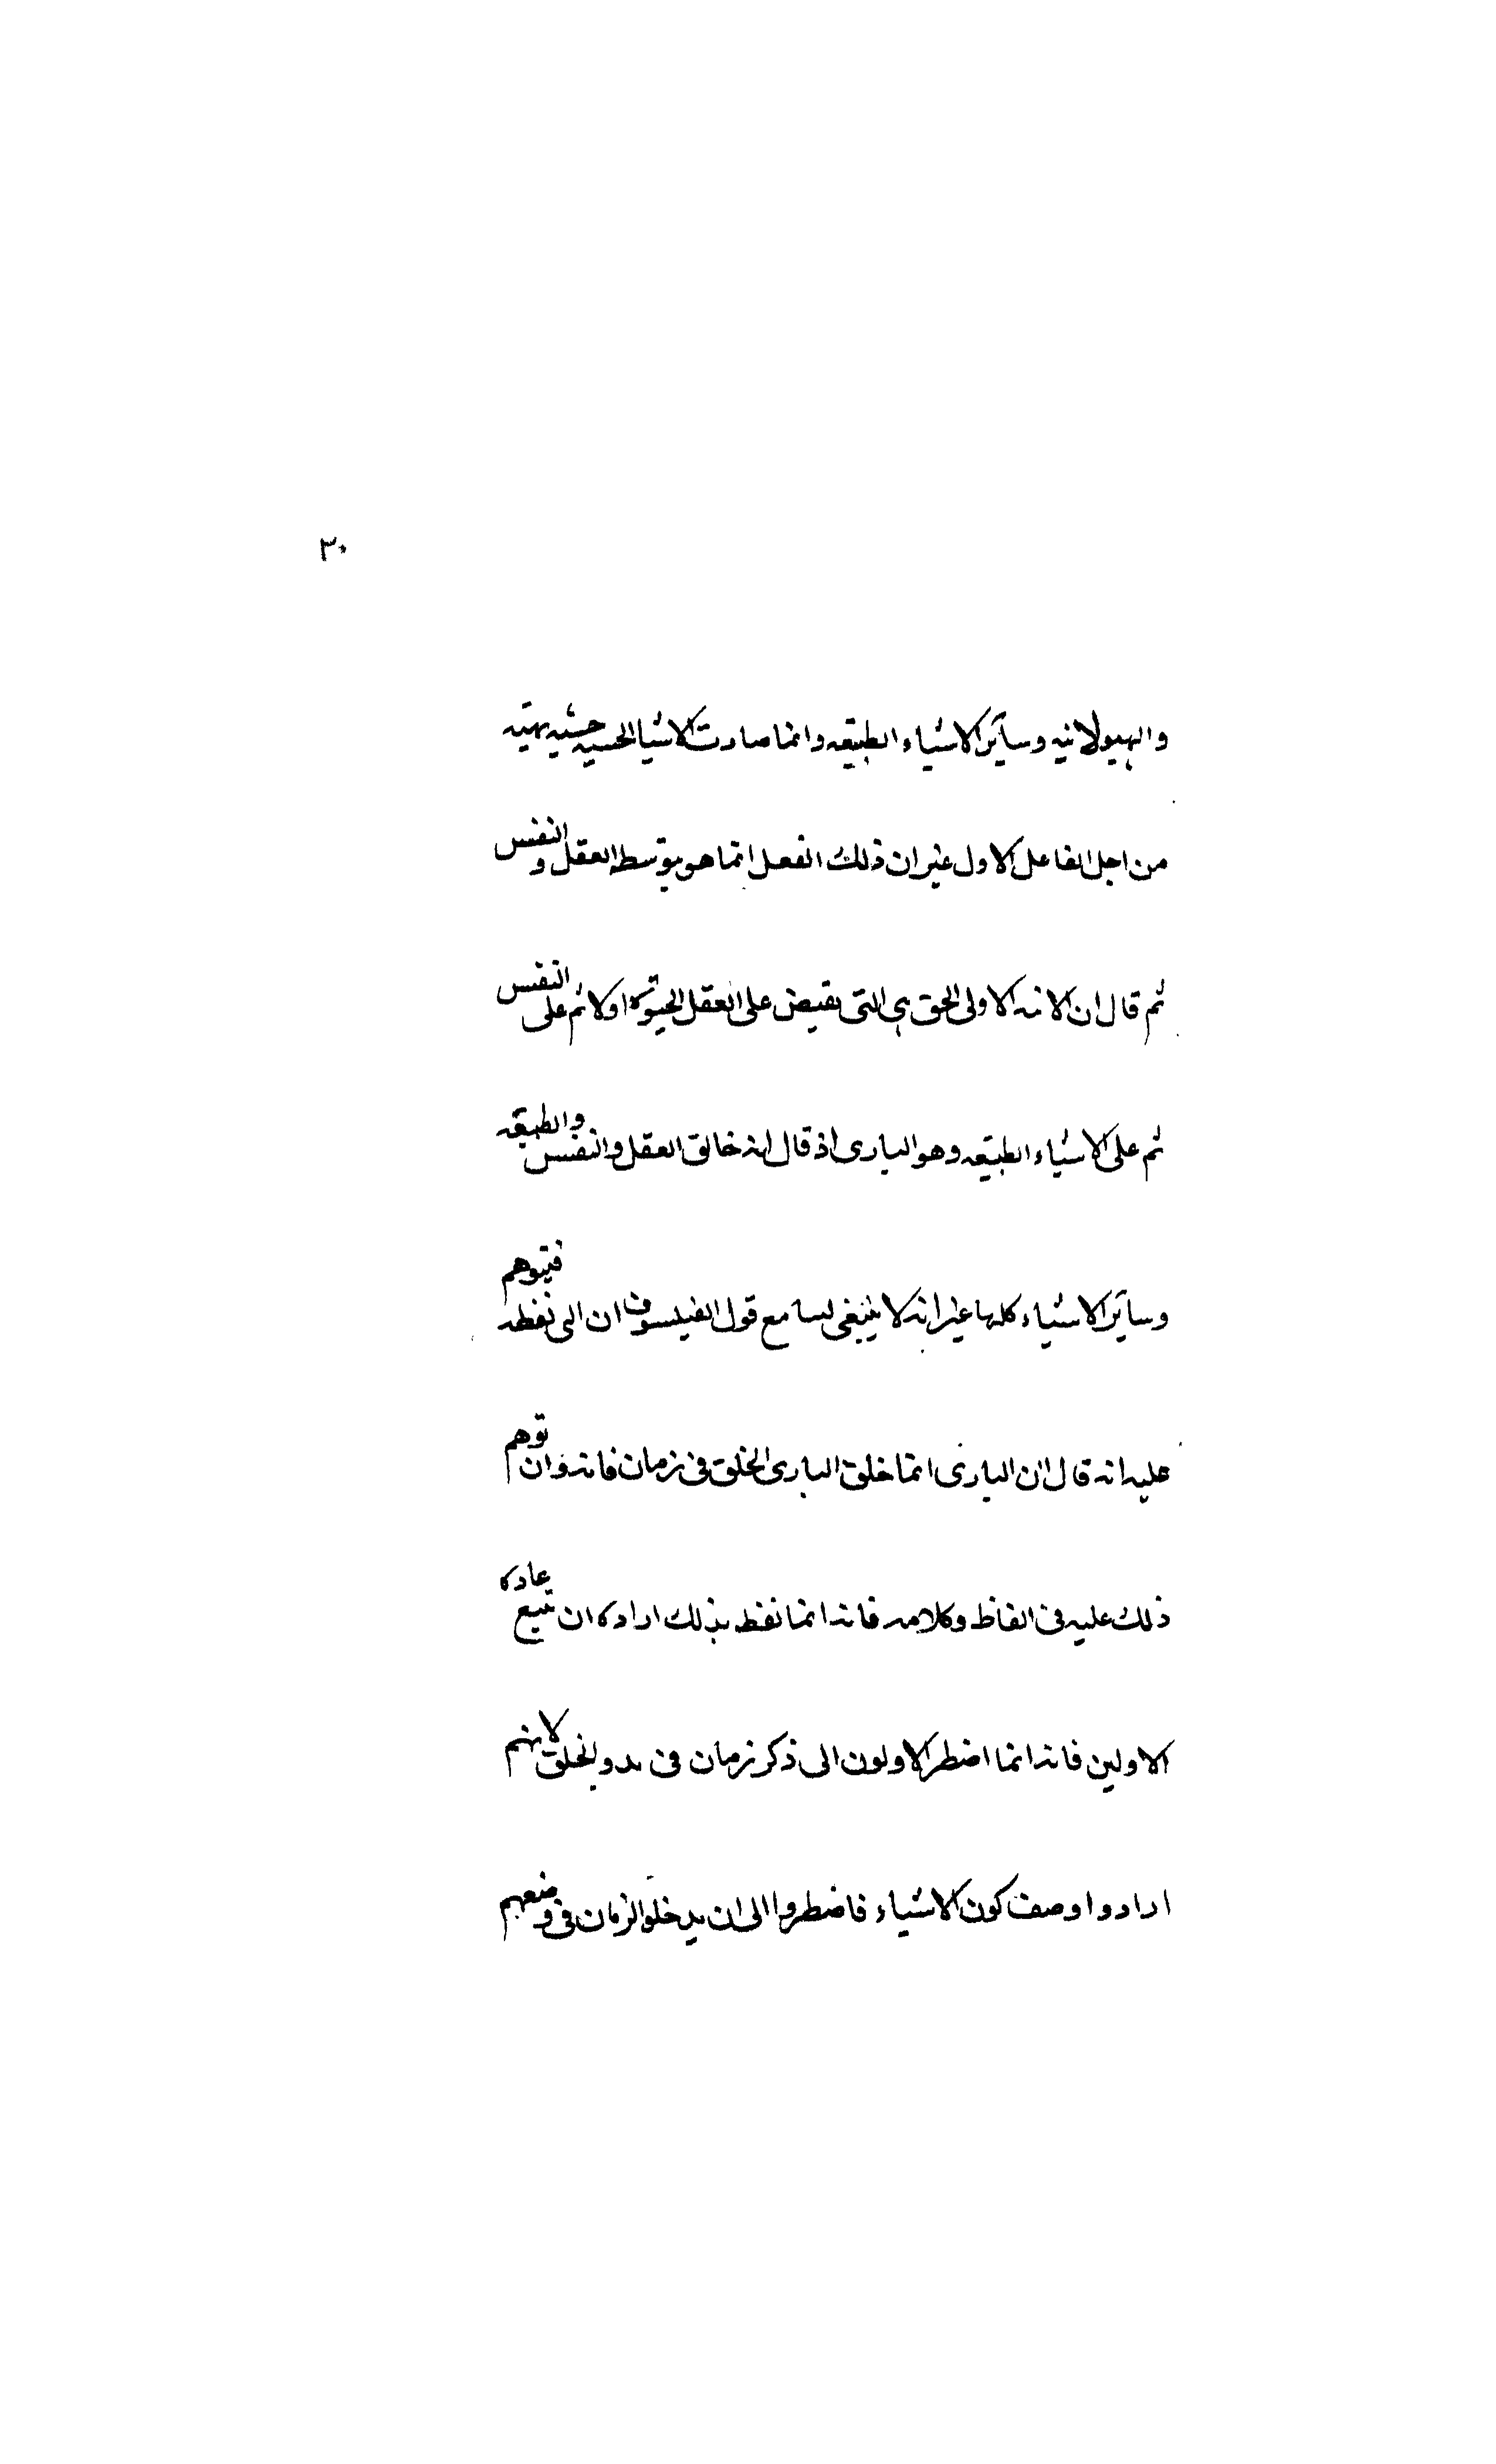 ٣٠
والهيولانيه وسآئر الاشياء الطبيعه وانما صارت الاشيا الحسيه حسنه بهيّه
من اجل الفاعل الاول غير ان ذلك الفعل انما هو بتوسط العقل والنفس
ثم قال ان الانه الاولى الحق هى التى تفيض على العقل الحيوة اولا ثم على النفس
ثم على الاشياء الطبيعه وهو البارى اذ قال انه خالق العقل والنفس والطبيعه
وسآئر الاشياء كلها غير انه لا ينبغى لسامع قول الفيلسوف ان الى نفطه فيتوهم
عليه انه قال ان البارى انما خلق البارى الخلق فى زمان فانه وان توهم
ذلك عليه فى الفاظ وكلامه فانه انما نفظ بذلك اراده ان تتبع عاده
الاولين فانه انما اضطر الاولون الى ذكر زمان فى بدو الخلق لانهم
ارادوا وصف كون الاشياء فاضطروا الى ان يدخلو الزمان فى وضعهم